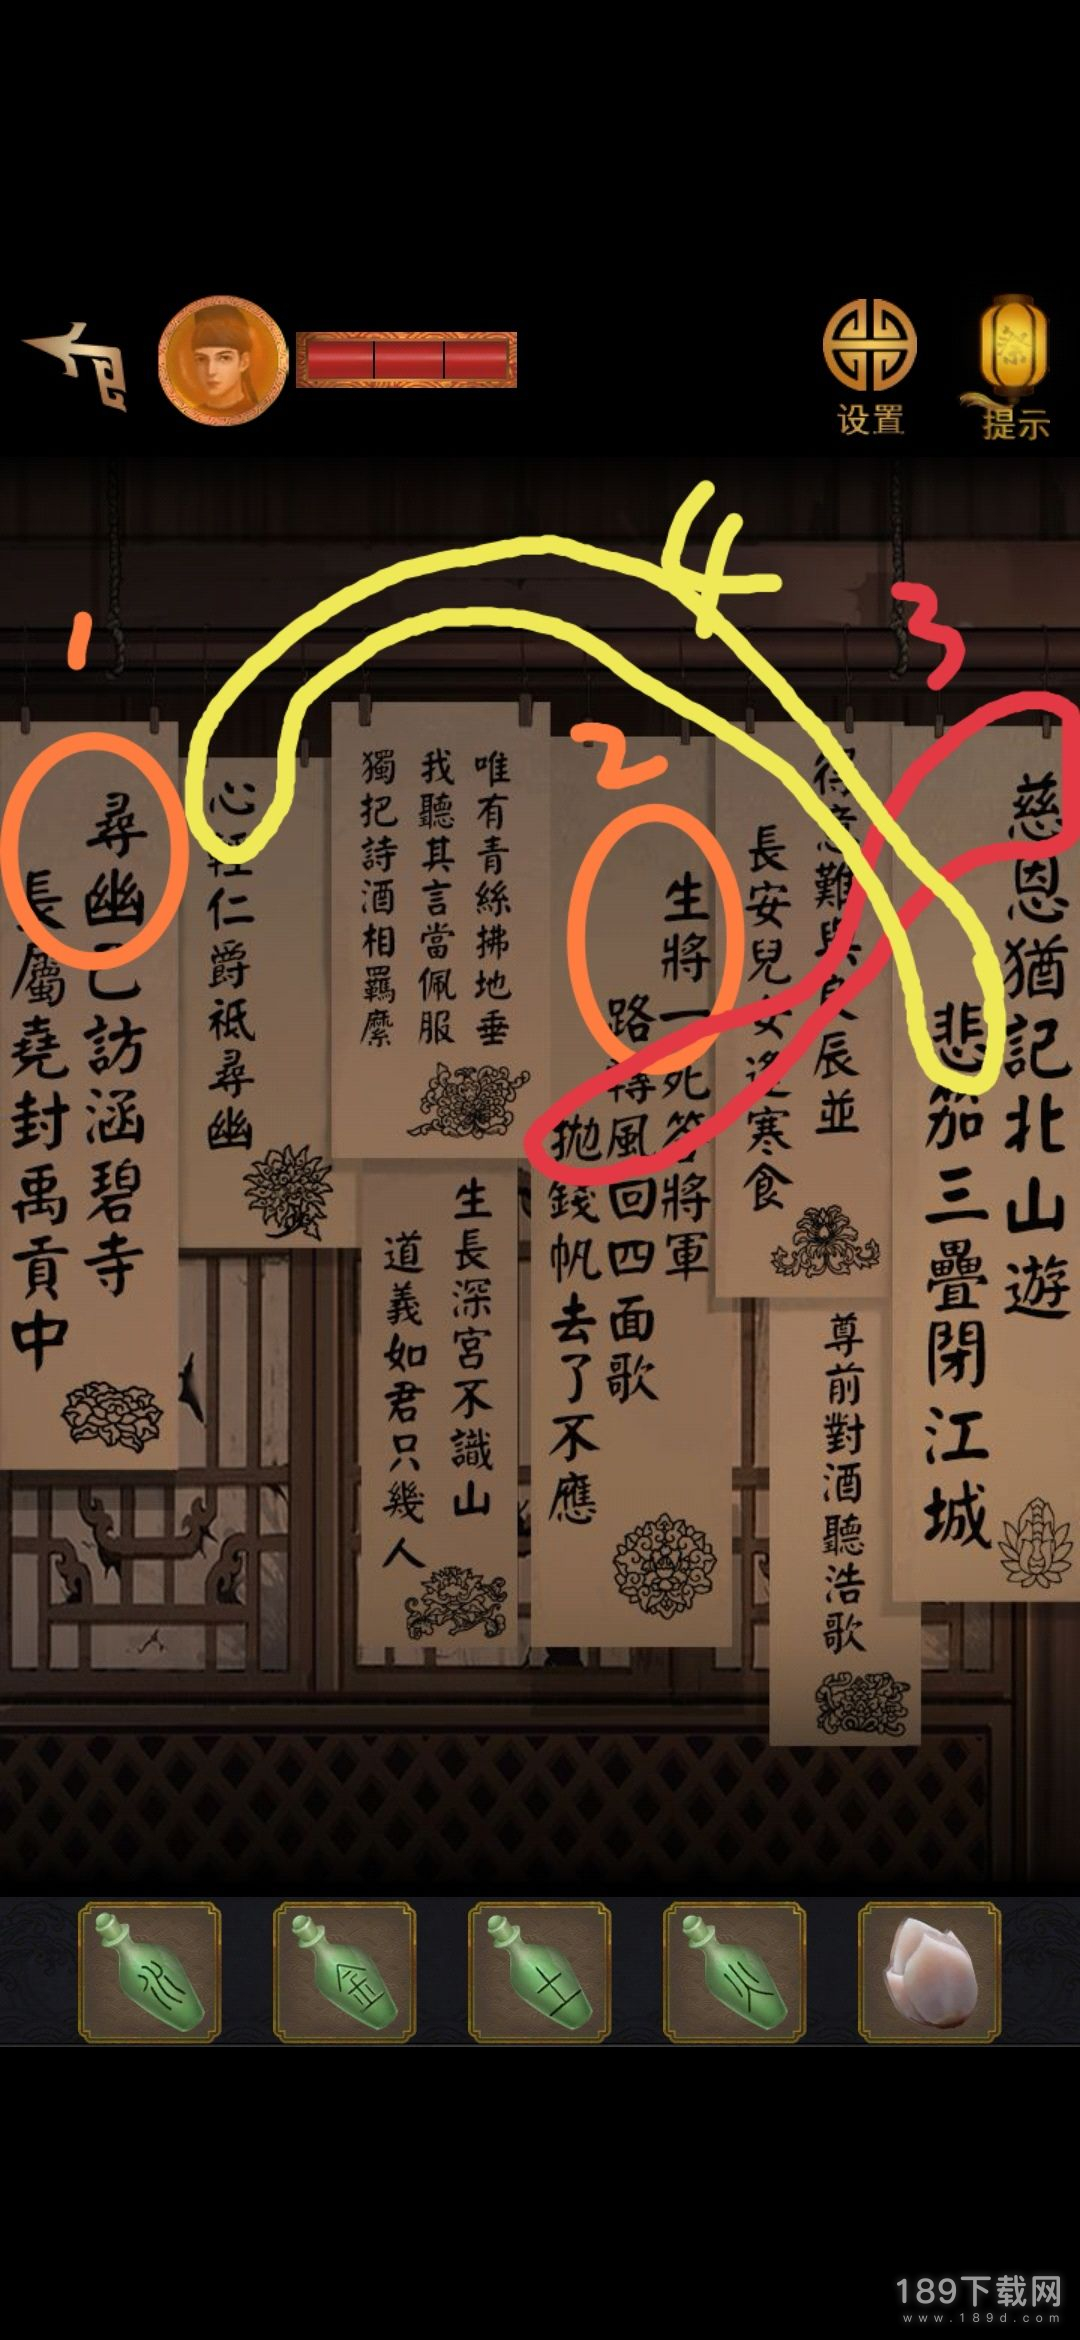 设置
提示
1
2
3
4
慈恩猶記北山遊
悲笳三疊閉江城
得意難與良辰並
長安兒女送寒食
尊前對酒聽浩歌
生將一死答將軍
路轉風回四面歌
拋錢帆去了不應
唯有青絲拂地垂
我聽其言當佩服
獨把詩酒相羈縻
生長深宮不識山
道義如君只幾人
心輕仁爵祗尋幽
尋幽已訪涵碧寺
長屬堯封禹貢中
水
金
土
火
189下载网
www.189d.com